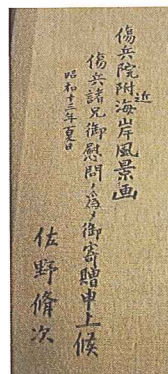 傷兵院附近海岸風景画
傷兵諸兄御慰問ノ為メ御寄贈申上候
昭和十三年夏日
佐野脩次